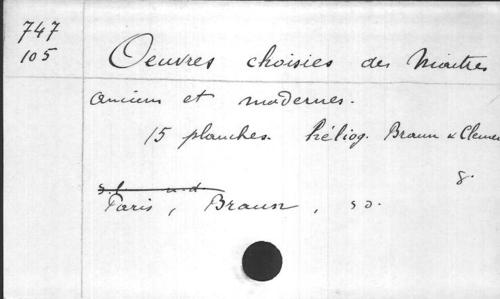 747
105
Oeuvres choisies des Maitres
anciens et modernes.
15 planches. héliog. Braun & Clemen
8.
s.l. n.d.
Paris, Braun, sd.